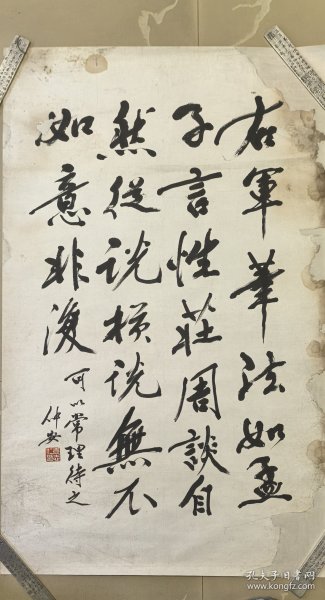 右軍筆法如孟
子言性莊周談自
然從說橫說無不
如意非復
可以常理待之
仲安
孔夫子旧书网